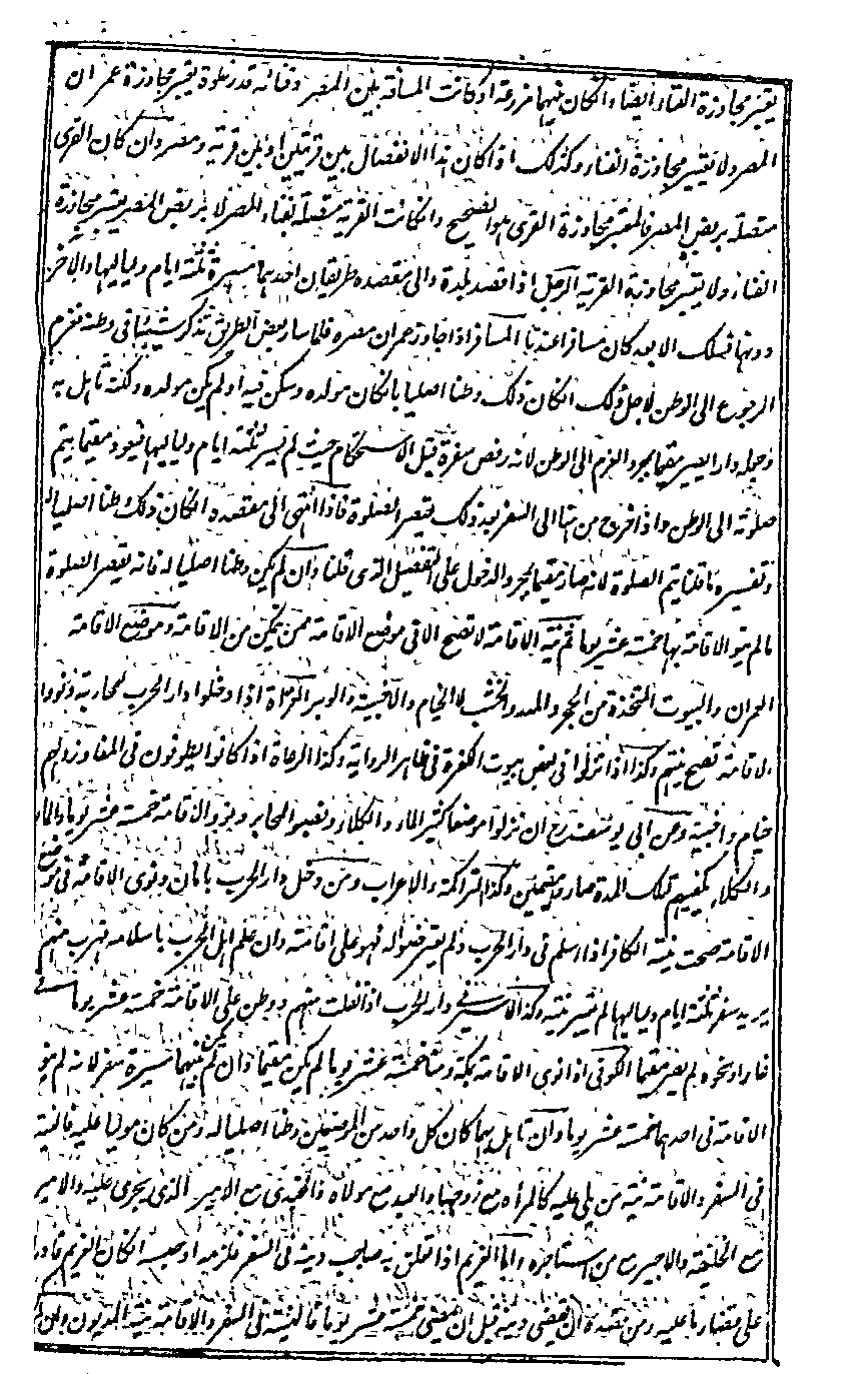 يعتبر مجاوزة الفناء ايضا وان كان بينهما مزرعة او كانت المسافة بين المصر وفنائه قدر غلوة يعتبر مجاوزة عمران
المصر ولا يعتبر مجاوزة الفناء وكذلك اذا كان هذا الانفصال بين قريتين او بين قرية ومصر وان كان القرى
متصلة بربض المصر فالمعتبر مجاوزة القرى هو الصحيح وان كانت القرية متصلة بفناء المصر لا بربض المصر يعتبر مجاوزة
الفناء ولا يعتبر مجاوزة القرية الرجل اذا قصد بلدة والى مقصده طريقان احدهما مسيرة ثلثة ايام ولياليها والآخر
دونها فسلك الابعد كان مسافرا عندنا المسافر اذا جاوز عمران مصره فلما سار بعض الطريق تذكر شيئا في وطنه فعزم
الرجوع الى الوطن لاجل ذلك ان كان ذلك وطنا اصليا بان كان مولده وسكن فيه او لم يكن مولده ولكنه تأهل به
وجعله دارا يصير مقيما بمجرد العزم الى الوطن لانه رفض سفره قبل الاستحكام حيث لم يسر ثلثة ايام ولياليها فيعود مقيما يتم
صلوته الى الوطن واذا خرج من هنا الى السفر بعد ذلك يقصر الصلوة فاذا انتهى الى مقصده ان كان ذلك وطنا اصليا له
وتفسيره ما قلنا يتم الصلوة لانه صار مقيما بمجرد الدخول على التفصيل الذى قلنا وان لم يكن وطنا اصليا له فانه يقصر الصلوة
ما لم ينو الاقامة بها خمسة عشر يوما ثم نية الاقامة لا تصح الا في موضع الاقامة ممن يتمكن من الاقامة وموضع الاقامة
العمران والبيوت المتخذة من الحجر والمدر والخشب لا الخيام والاخبية والوبر الغزاة اذا دخلوا دار الحرب لمحاربة ونووا
الاقامة تصح نيتهم وكذا اذا نزلوا في بعض بيوت الكفرة في ظاهر الرواية وكذا الرعاة اذا كانوا يطوفون في المفاوز ولهم
خيام واخبية وعن ابى يوسف رح ان نزلوا موضعا كثير الماء والكلاء ونصبوا المخابز ونووا الاقامة خمسة عشر يوما والماء
والكلاء يكفيهم تلك المدة صاروا مقيمين وكذا التراكمة والاعراب ومن دخل دار الحرب بامان ونوى الاقامة في موضع
الاقامة صحت نيته الكافر اذا اسلم في دار الحرب ولم يتعرضوا له فهو على اقامته وان علم اهل الحرب باسلامه فهرب منهم
يريد سفر ثلثة ايام ولياليها لم تعتبر نيته وكذا الاسير في دار الحرب اذا انفلت منهم ووطن على الاقامة خمسة عشر يوما في
غار او نحوه لم يصر مقيما الكوفى اذا نوى الاقامة بمكة ومنا خمسة عشر يوما لم يكن مقيما وان لم يكن بينهما مسيرة سفر لانه لم ينو
الاقامة في احدهما خمسة عشر يوما وان تأهل بهما كان كل واحد من الموضعين وطنا اصليا له ومن كان موليا عليه فالنية
في السفر والاقامة نية من يلى عليه كالمرأة مع زوجها والعبد مع مولاه والجندى مع الامير الذى يجرى عليه والامير
مع الخليفة والاجير مع من استاجره واما الغريم اذا تعلق به صاحب دينه في السفر فلزمه او حبسه ان كان الغريم قادرا
على قضاء ما عليه ومن قصده ان يقضى دينه قبل ان يمضى خمسة عشر يوما فالنية في السفر والاقامة نية المديون وان